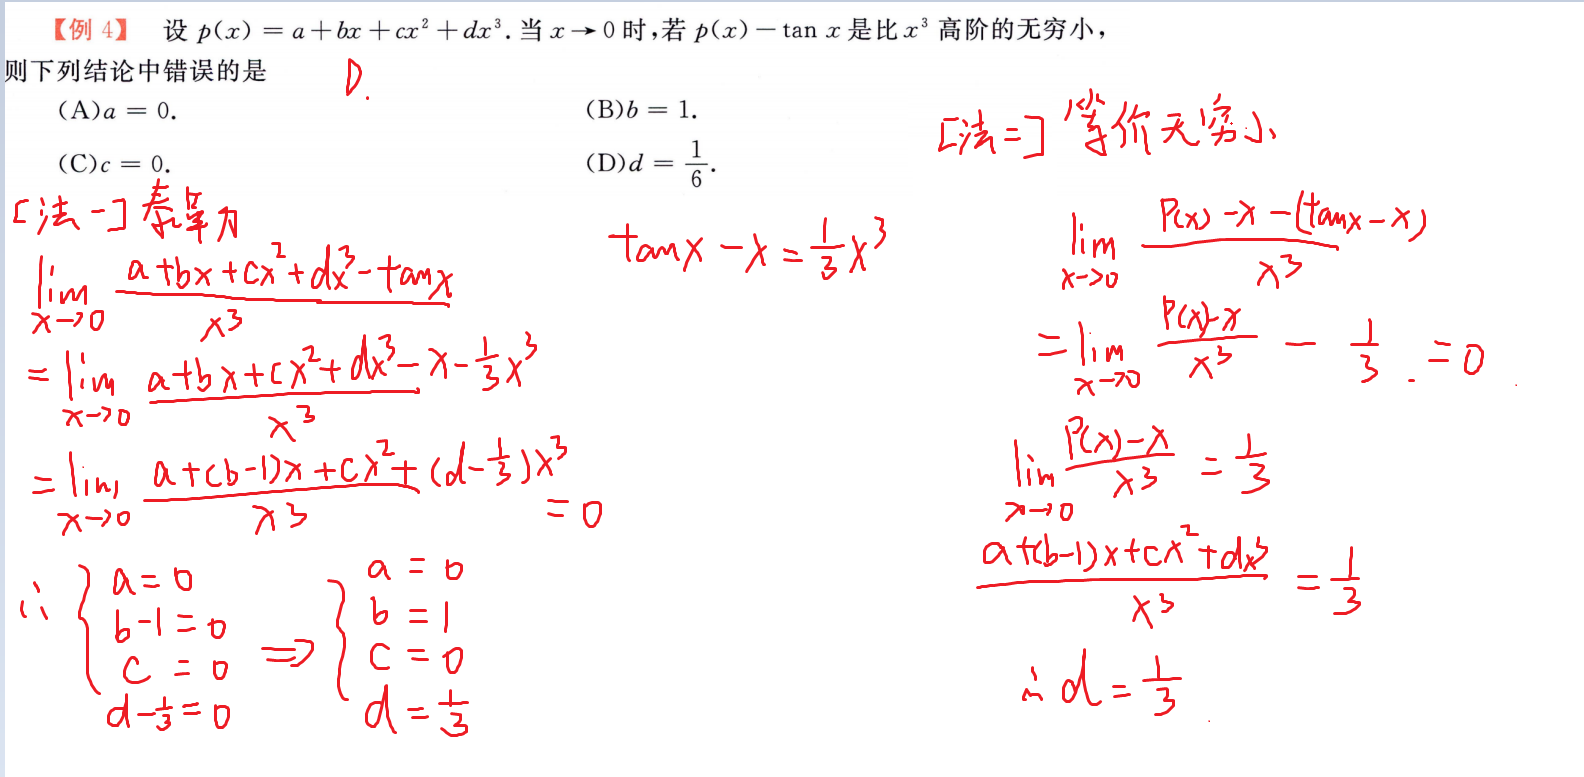 【例 4】 设 p(x) = a + bx + cx² + dx³. 当 x → 0 时,若 p(x) − tan x 是比 x³ 高阶的无穷小,
则下列结论中错误的是 D.
(A)a = 0. (B)b = 1.
(C)c = 0. (D)d = 1/6.
[法一] 泰勒
lim x→0 (a+bx+cx²+dx³-tanx)/x³
= lim x→0 (a+bx+cx²+dx³-x-1/3x³)/x³
= lim x→0 (a+(b-1)x+cx²+(d-1/3)x³)/x³ = 0
∴ { a=0
b-1=0
c=0
d-1/3=0
⇒ { a=0
b=1
c=0
d=1/3
tanx-x=1/3x³
[法二] 等价无穷小
lim x→0 (P(x)-x-(tanx-x))/x³
= lim x→0 (P(x)-x)/x³ - 1/3. = 0
lim x→0 (P(x)-x)/x³ = 1/3
(a+(b-1)x+cx²+dx³)/x³ = 1/3
∴ d=1/3